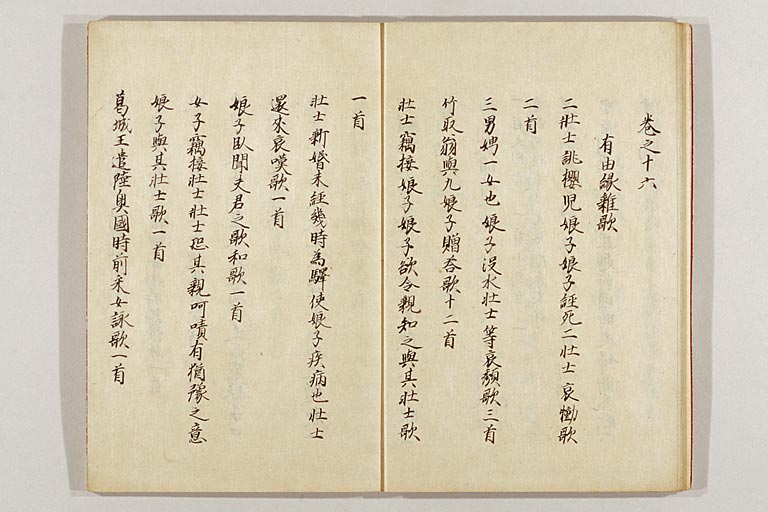 巻之十六
有由縁雜歌
二壯士誂櫻児娘子娘子經死二壯士哀慟歌
二首
三男娉一女也娘子没水壯士等哀頽歌三首
竹取翁與九娘子贈答歌十二首
壯士竊接娘子娘子欲令親知之與其壯士歌
一首
壯士新婚未經幾時為驛使娘子疾病也壯士
還來哀嘆歌一首
娘子臥聞夫君之歌和歌一首
女子竊接壯士壯士恐其親呵嘖有猶豫之意
娘子與其壯士歌一首
葛城王遣陸奥國時前采女詠歌一首